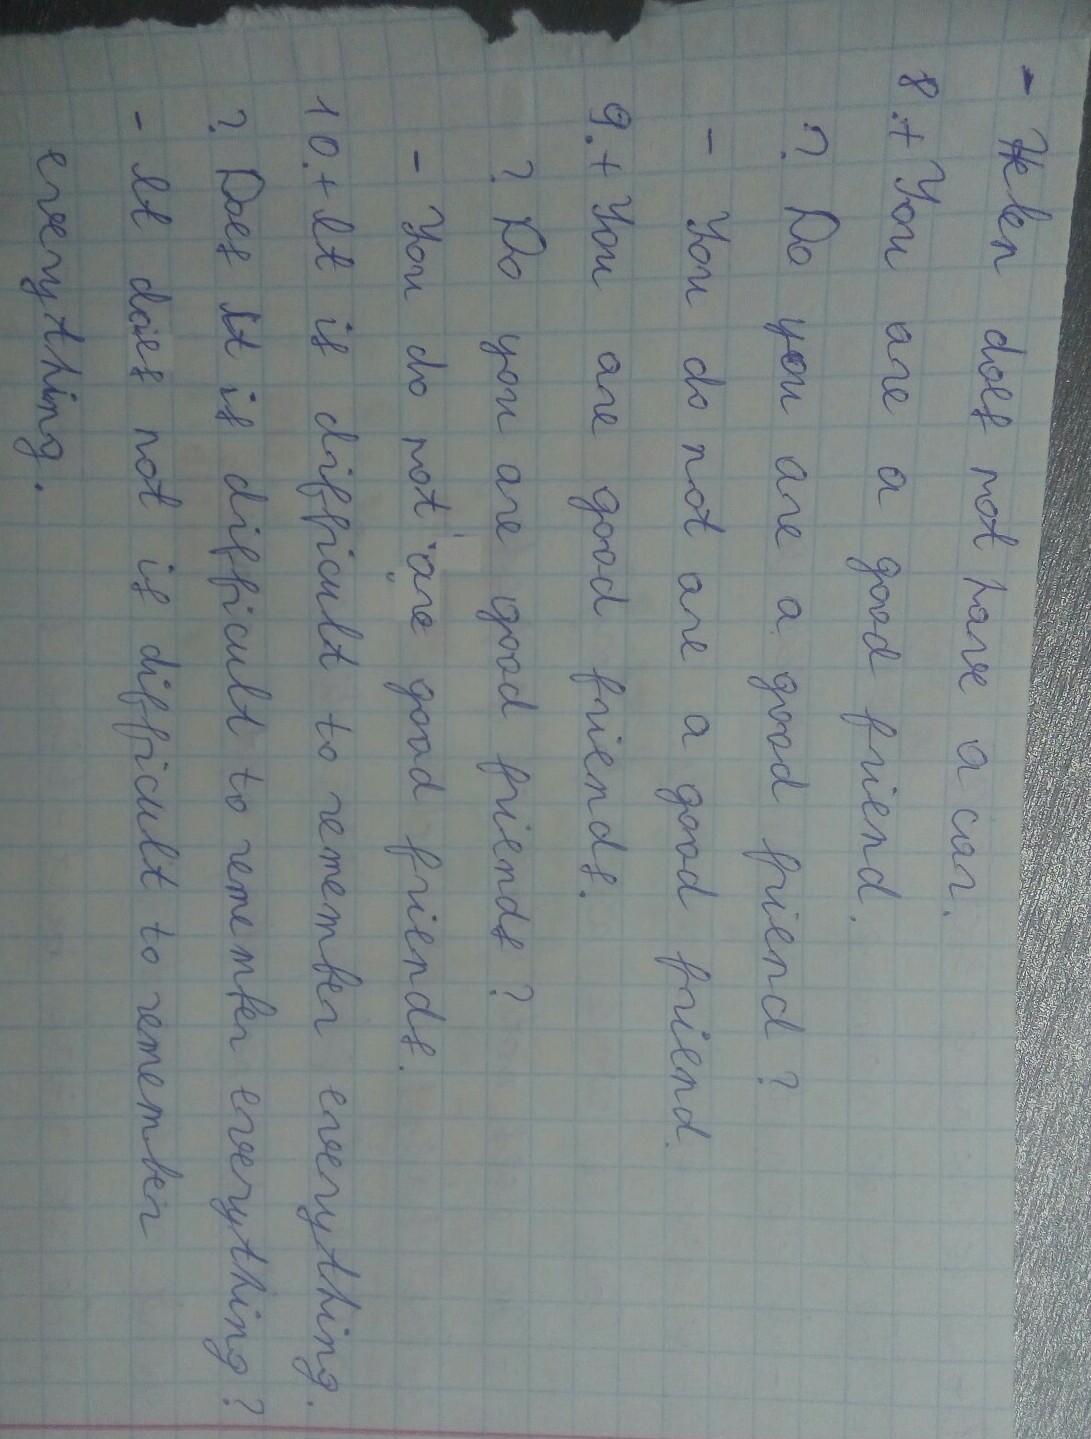 - Helen does not have a car.
8. + You are a good friend.
? Do you are a good friend?
- You do not are a good friend.
9. + You are good friends.
? Do you are good friends?
- You do not are good friends.
10. + It is difficult to remember everything.
? Does it is difficult to remember everything?
- It does not is difficult to remember
everything.